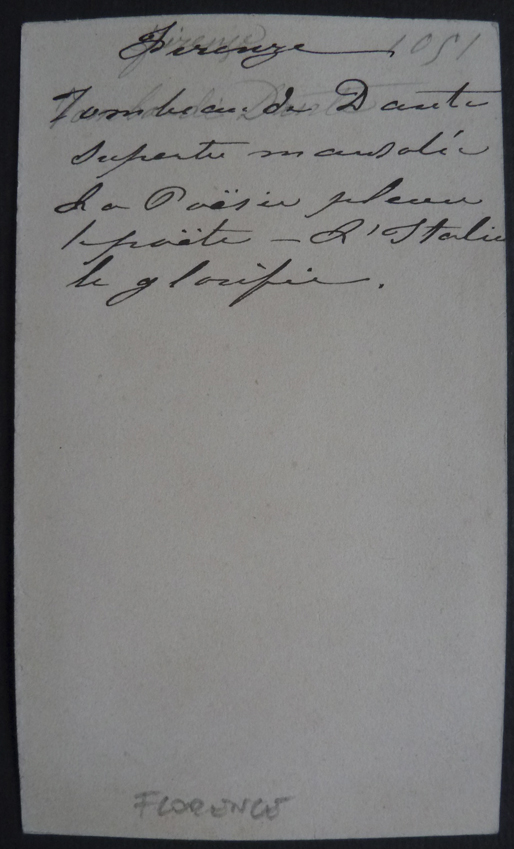 Firenze 1051
Tombeau de Dante
superbe mausolée
La Poësie pleure
le poëte - L'Italie
le glorifie.
FLORENCE